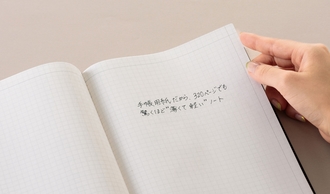 手帳用紙だから、320ページでも
驚くほど"薄くて軽い"ノート